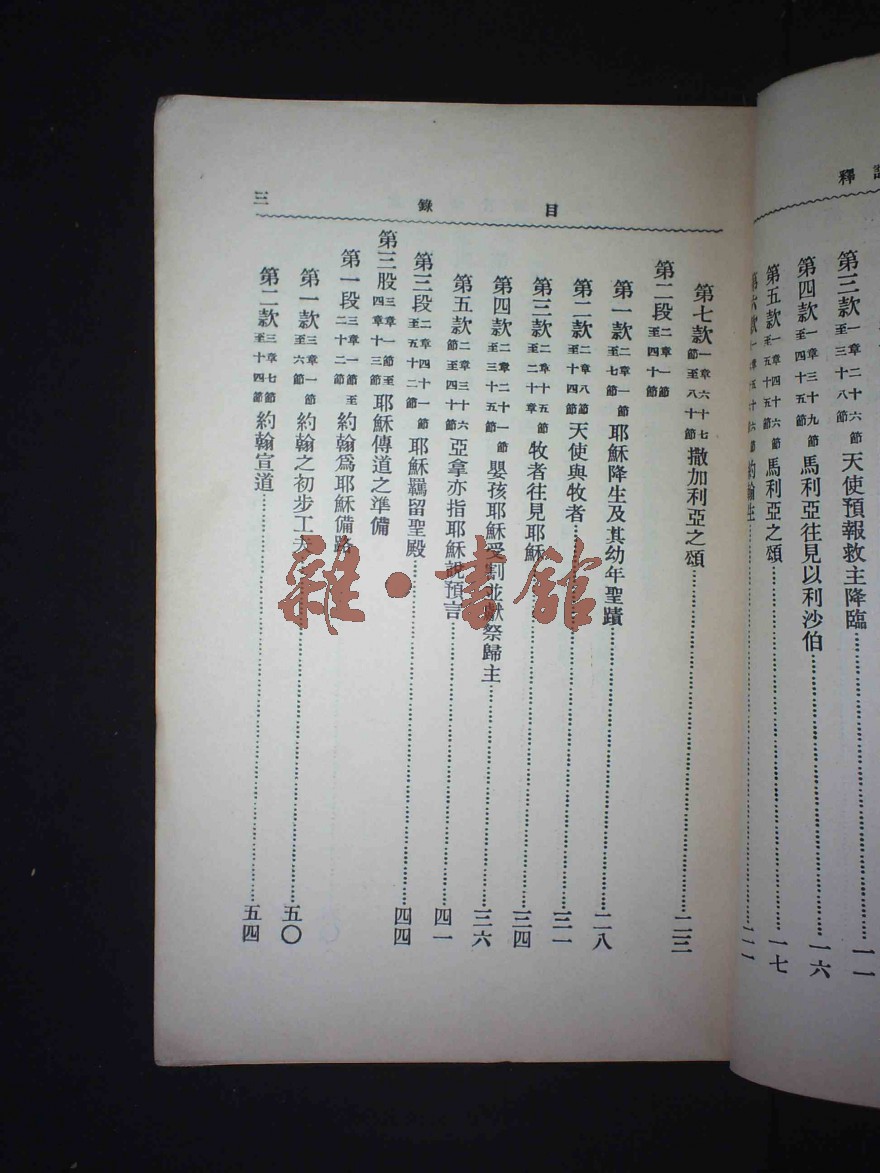 釋
第三款 一章二十六節至三十八節 天使預報救主降臨 一一
第四款 一章三十九節至四十五節 馬利亞往見以利沙伯 一六
第五款 一章四十六節至五十五節 馬利亞之頌 一七
第六款 約翰生
目錄 三
第七款 一章六十七節至八十節 撒加利亞之頌 二三
第二段 二章一節至四十節
第一款 二章一節至七節 耶穌降生及其幼年聖蹟 二八
第二款 二章八節至十四節 天使與牧者 三一
第三款 二章十五節至二十章 牧者往見耶穌 三四
第四款 二章二十一節至三十五節 嬰孩耶穌受割並獻祭歸主 三六
第五款 二章三十六節至四十節 亞拿亦指耶穌說預言 四一
第三段 二章四十一節至五十二節 耶穌羈留聖殿 四四
第三股 三章一節至四章十三節 耶穌傳道之準備
第一段 三章一節至二十二節 約翰爲耶穌備路
第一款 三章一節至六節 約翰之初步工夫 五〇
第二款 三章七節至十四節 約翰宣道 五四
雜·書館